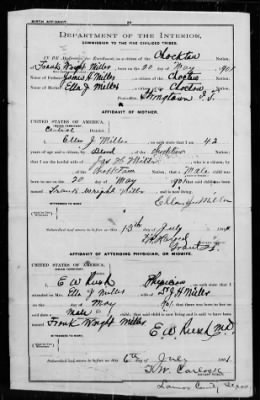 BIRTH AFFIDAVIT
DEPARTMENT OF THE INTERIOR,
COMMISSION TO THE FIVE CIVILIZED TRIBES.
IN RE Application for Enrollment, as a citizen of the Choctaw Nation,
Frank Wright Miller, born on the 20 day of May, 1901
Name of Father: James H Miller a citizen of the Choctaw Nation.
Name of Mother: Ella J Miller a citizen of the Choctaw Nation.
Postoffice Stringtown I.T.
AFFIDAVIT OF MOTHER.
UNITED STATES OF AMERICA,
INDIAN TERRITORY,
Central District.
I, Ella J Miller, on oath state that I am 42
years of age and a citizen, by blood, of the Choctaw Nation;
that I am the lawful wife of Jas H Miller, who is a citizen, by
of the Choctaw Nation; that a Male child was
born to me on 20 day of May, 1901; that said child has been
named Frank Wright Miller, and is now living.
Ella J Miller
Subscribed and sworn to before me this 13th day of July, 1901
AFFIDAVIT OF ATTENDING PHYSICIAN, OR MIDWIFE.
UNITED STATES OF AMERICA,
INDIAN TERRITORY,
I, E W Rush, a Physician, on oath state that I
attended on Mrs. Ella J Miller, wife of J H Miller
day of May, 1901; that there was born to her
Male child; that said child is now living and is said to have been
named Frank Wright Miller
E W Rush MD
Subscribed and sworn to before me this 6th day of July, 1901
T. W. Carlock
Lamar County Texas